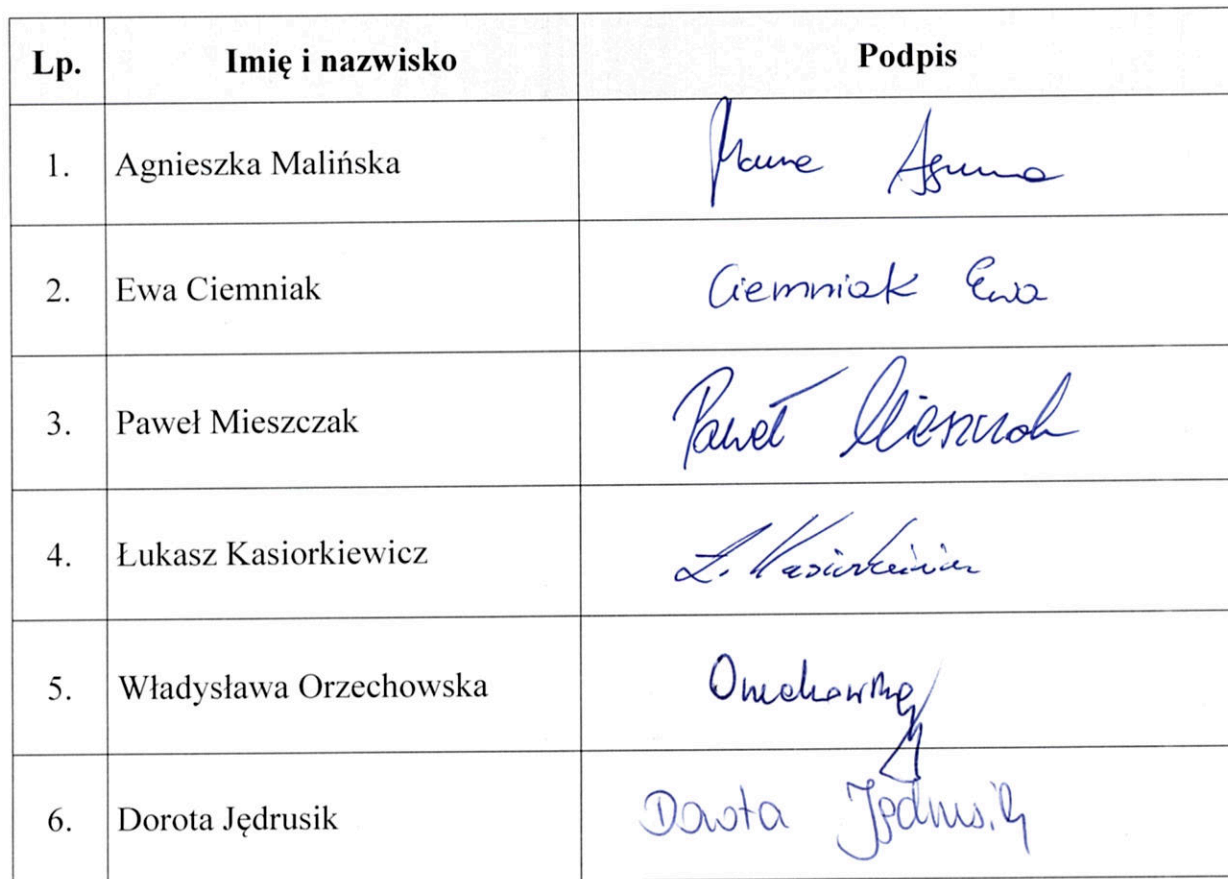 Lp. Imię i nazwisko Podpis
1. Agnieszka Malińska
2. Ewa Ciemniak Ciemniak Ewa
3. Paweł Mieszczak Paweł Mieszczak
4. Łukasz Kasiorkiewicz Ł. Kasiorkiewicz
5. Władysława Orzechowska Orzechowska
6. Dorota Jędrusik Dorota Jędrusik